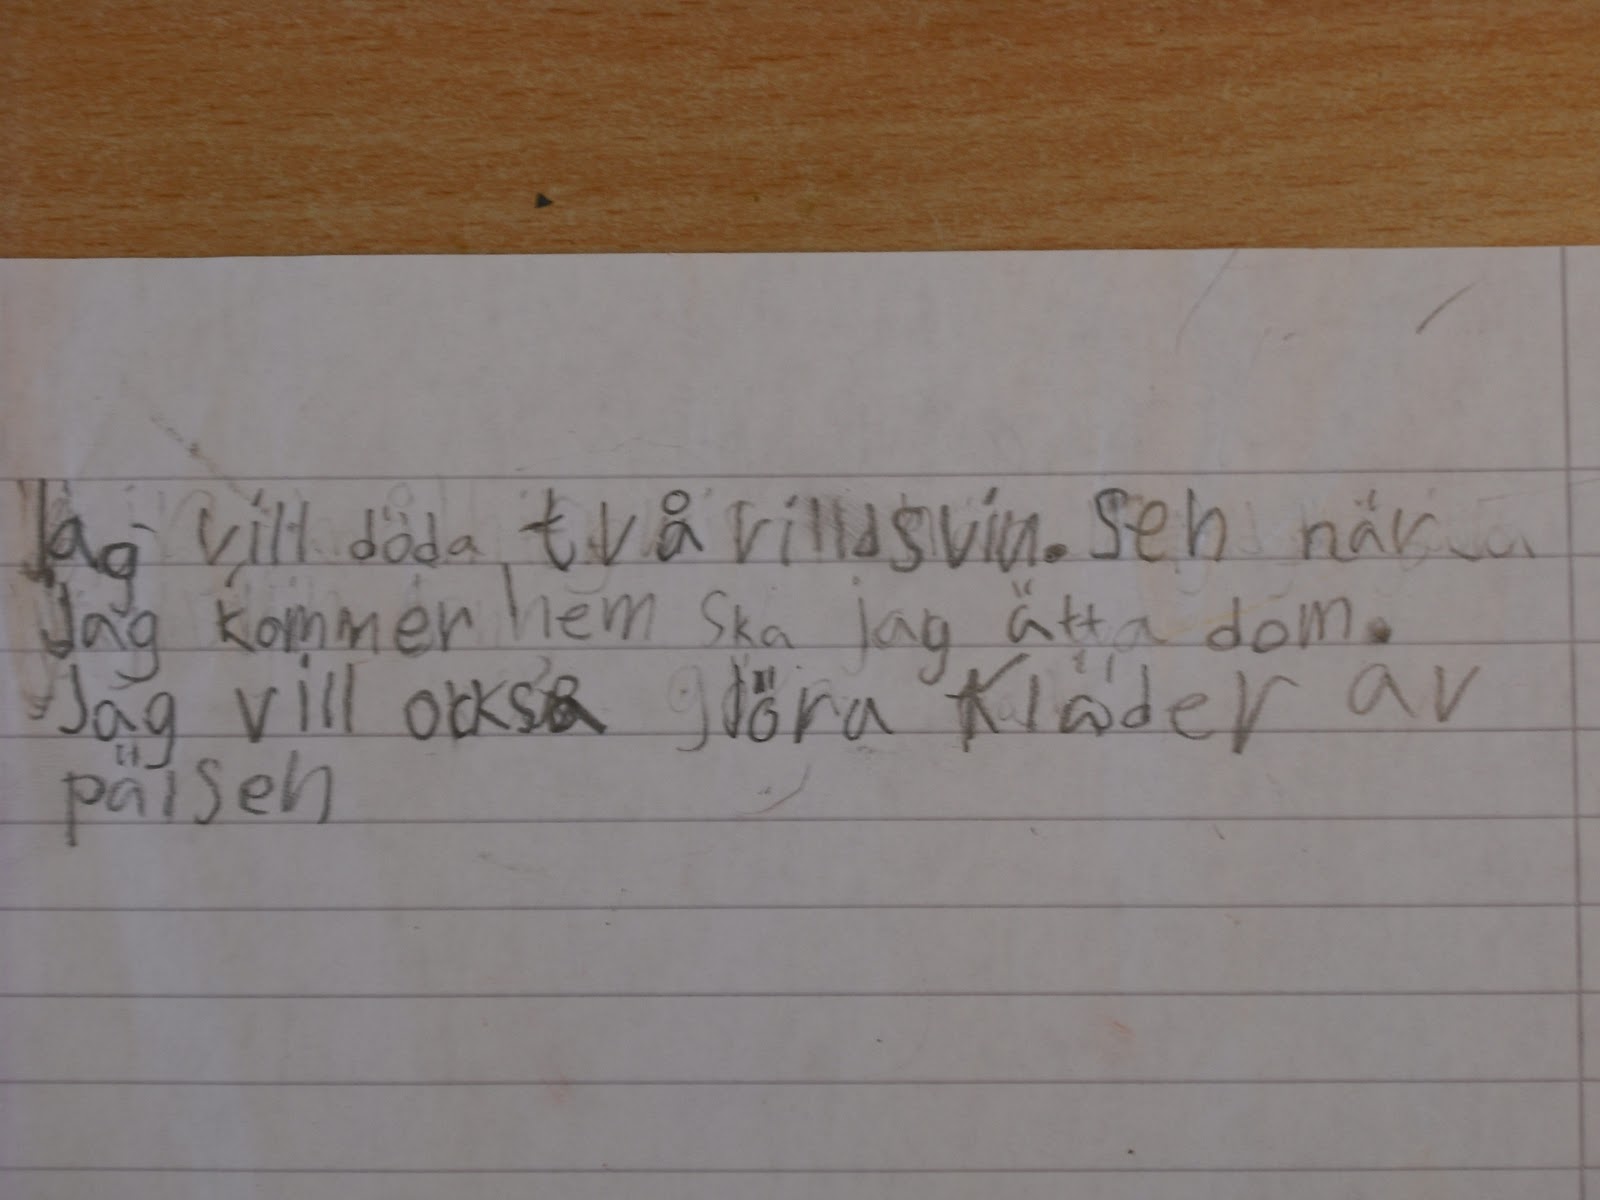 Jag vill döda två villdsvin. Sen när
Jag kommer hem ska jag ätta dom.
Jag vill också gjöra kläder av
pälsen